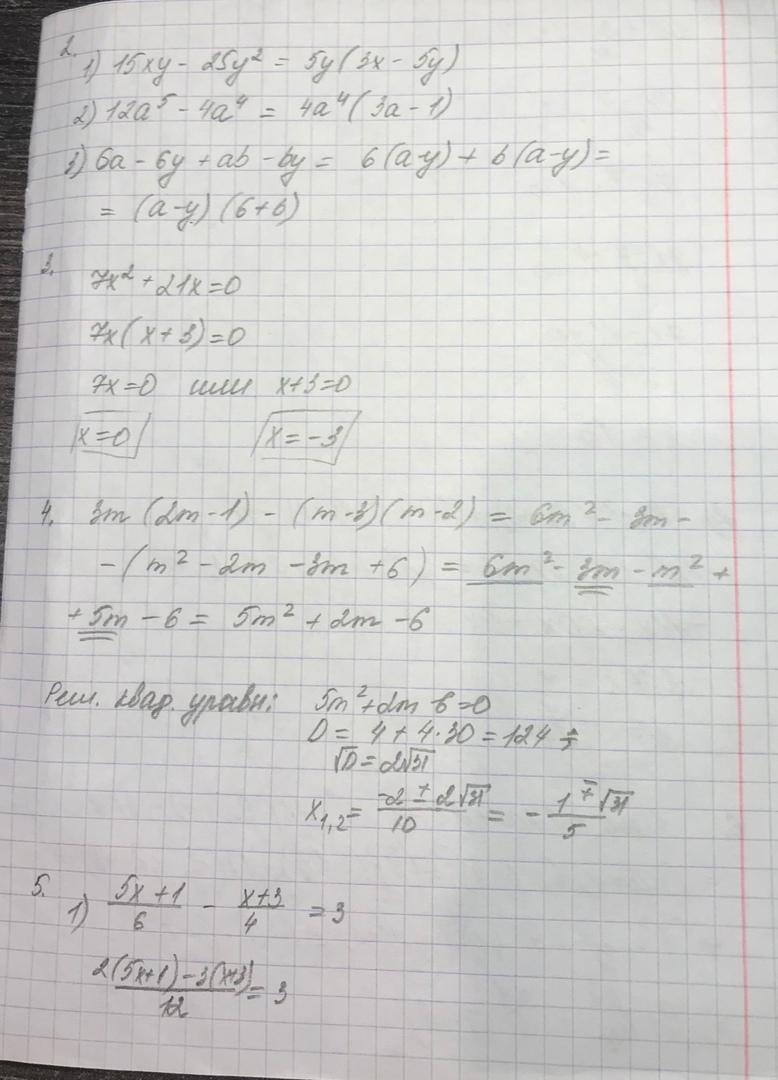 2.
1) 15xy - 25y² = 5y(3x - 5y)
2) 12a⁵ - 4a⁴ = 4a⁴(3a - 1)
3) 6a - 6y + ab - by = 6(a-y) + b(a-y) =
= (a-y)(6+b)
3.
7x² + 21x = 0
7x(x+3) = 0
7x = 0 или x+3 = 0
x = 0 x = -3
4. 3m(2m-1) - (m-3)(m-2) = 6m² - 3m -
- (m² - 2m - 3m + 6) = 6m² - 3m - m² +
+ 5m - 6 = 5m² + 2m - 6
Реш. квад. уравн: 5m² + 2m 6 = 0
D = 4 + 4·30 = 124
√D = 2√31
x₁,₂ = (-2 ± 2√31)/10 = - (1 ∓ √31)/5
5.
1) (5x+1)/6 - (x+3)/4 = 3
(2(5x+1) - 3(x+3))/12 = 3